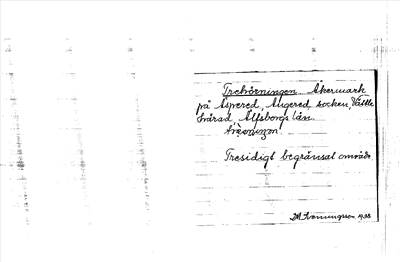 Trehörningen Åkermark
på Aspered, Angered socken, Vättle
härad Älfsborgs län.
Tresidigt begränsat område.
1938